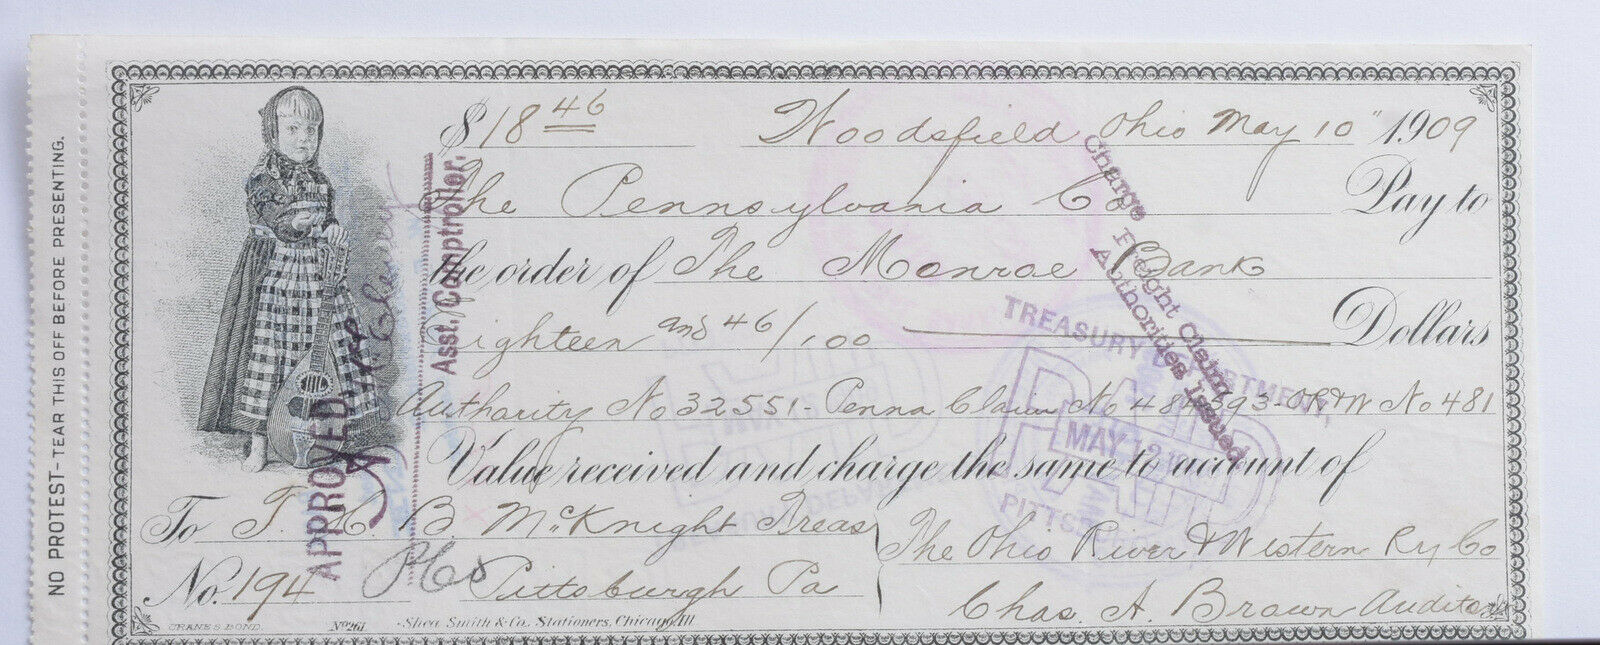 NO PROTEST-TEAR THIS OFF BEFORE PRESENTING.
$18 46 Woodsfield Ohio May 10" 1909
The Pennsylvania Co Pay to
the order of The Monroe Bank
Eighteen and 46/100 Dollars
Authority No 32551- Penna Claim No 484393- OR&W No 481
Value received and charge the same to account of
To T. H. B. McKnight Treas
The Ohio River & Western Ry Co
No. 194 Pittsburgh Pa
Chas. A. Brown Auditor
CRANE'S BOND. No 261 Shea Smith & Co. Stationers, Chicago, Ill
APPROVED
Asst. Comptroller.
Charge Freight Claim
Authorities Issued
TREASURY DEPARTMENT,
PAID
MAY 12